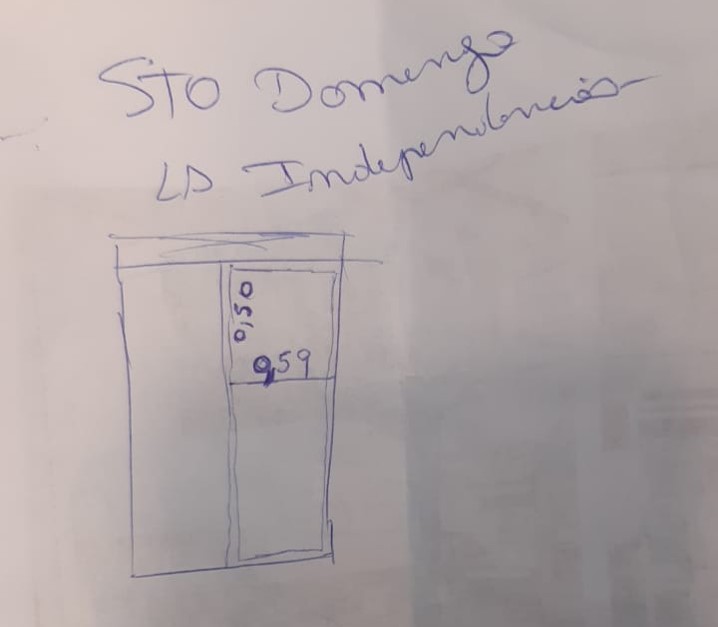 STO Domengo
LD Independencia
0,50
0,59